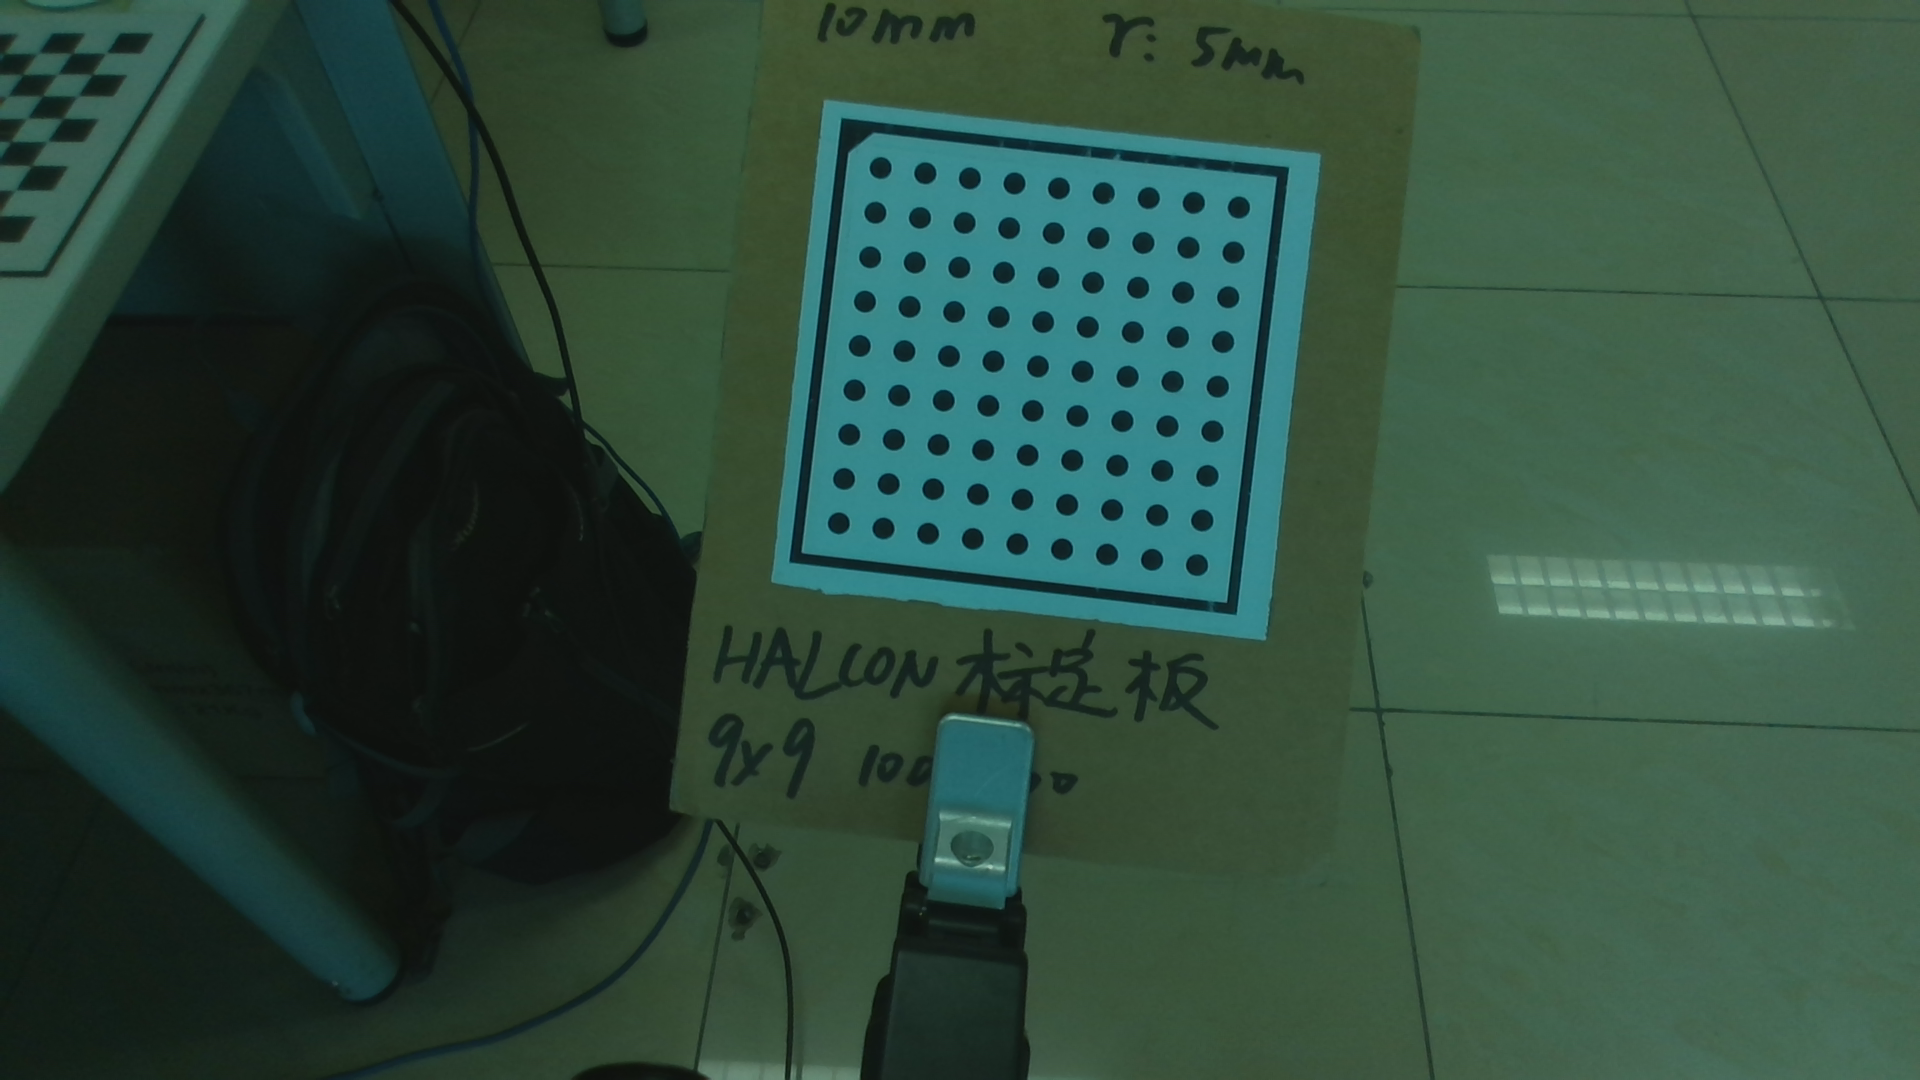 10mm r: 5mm
HALCON 标定板
9x9